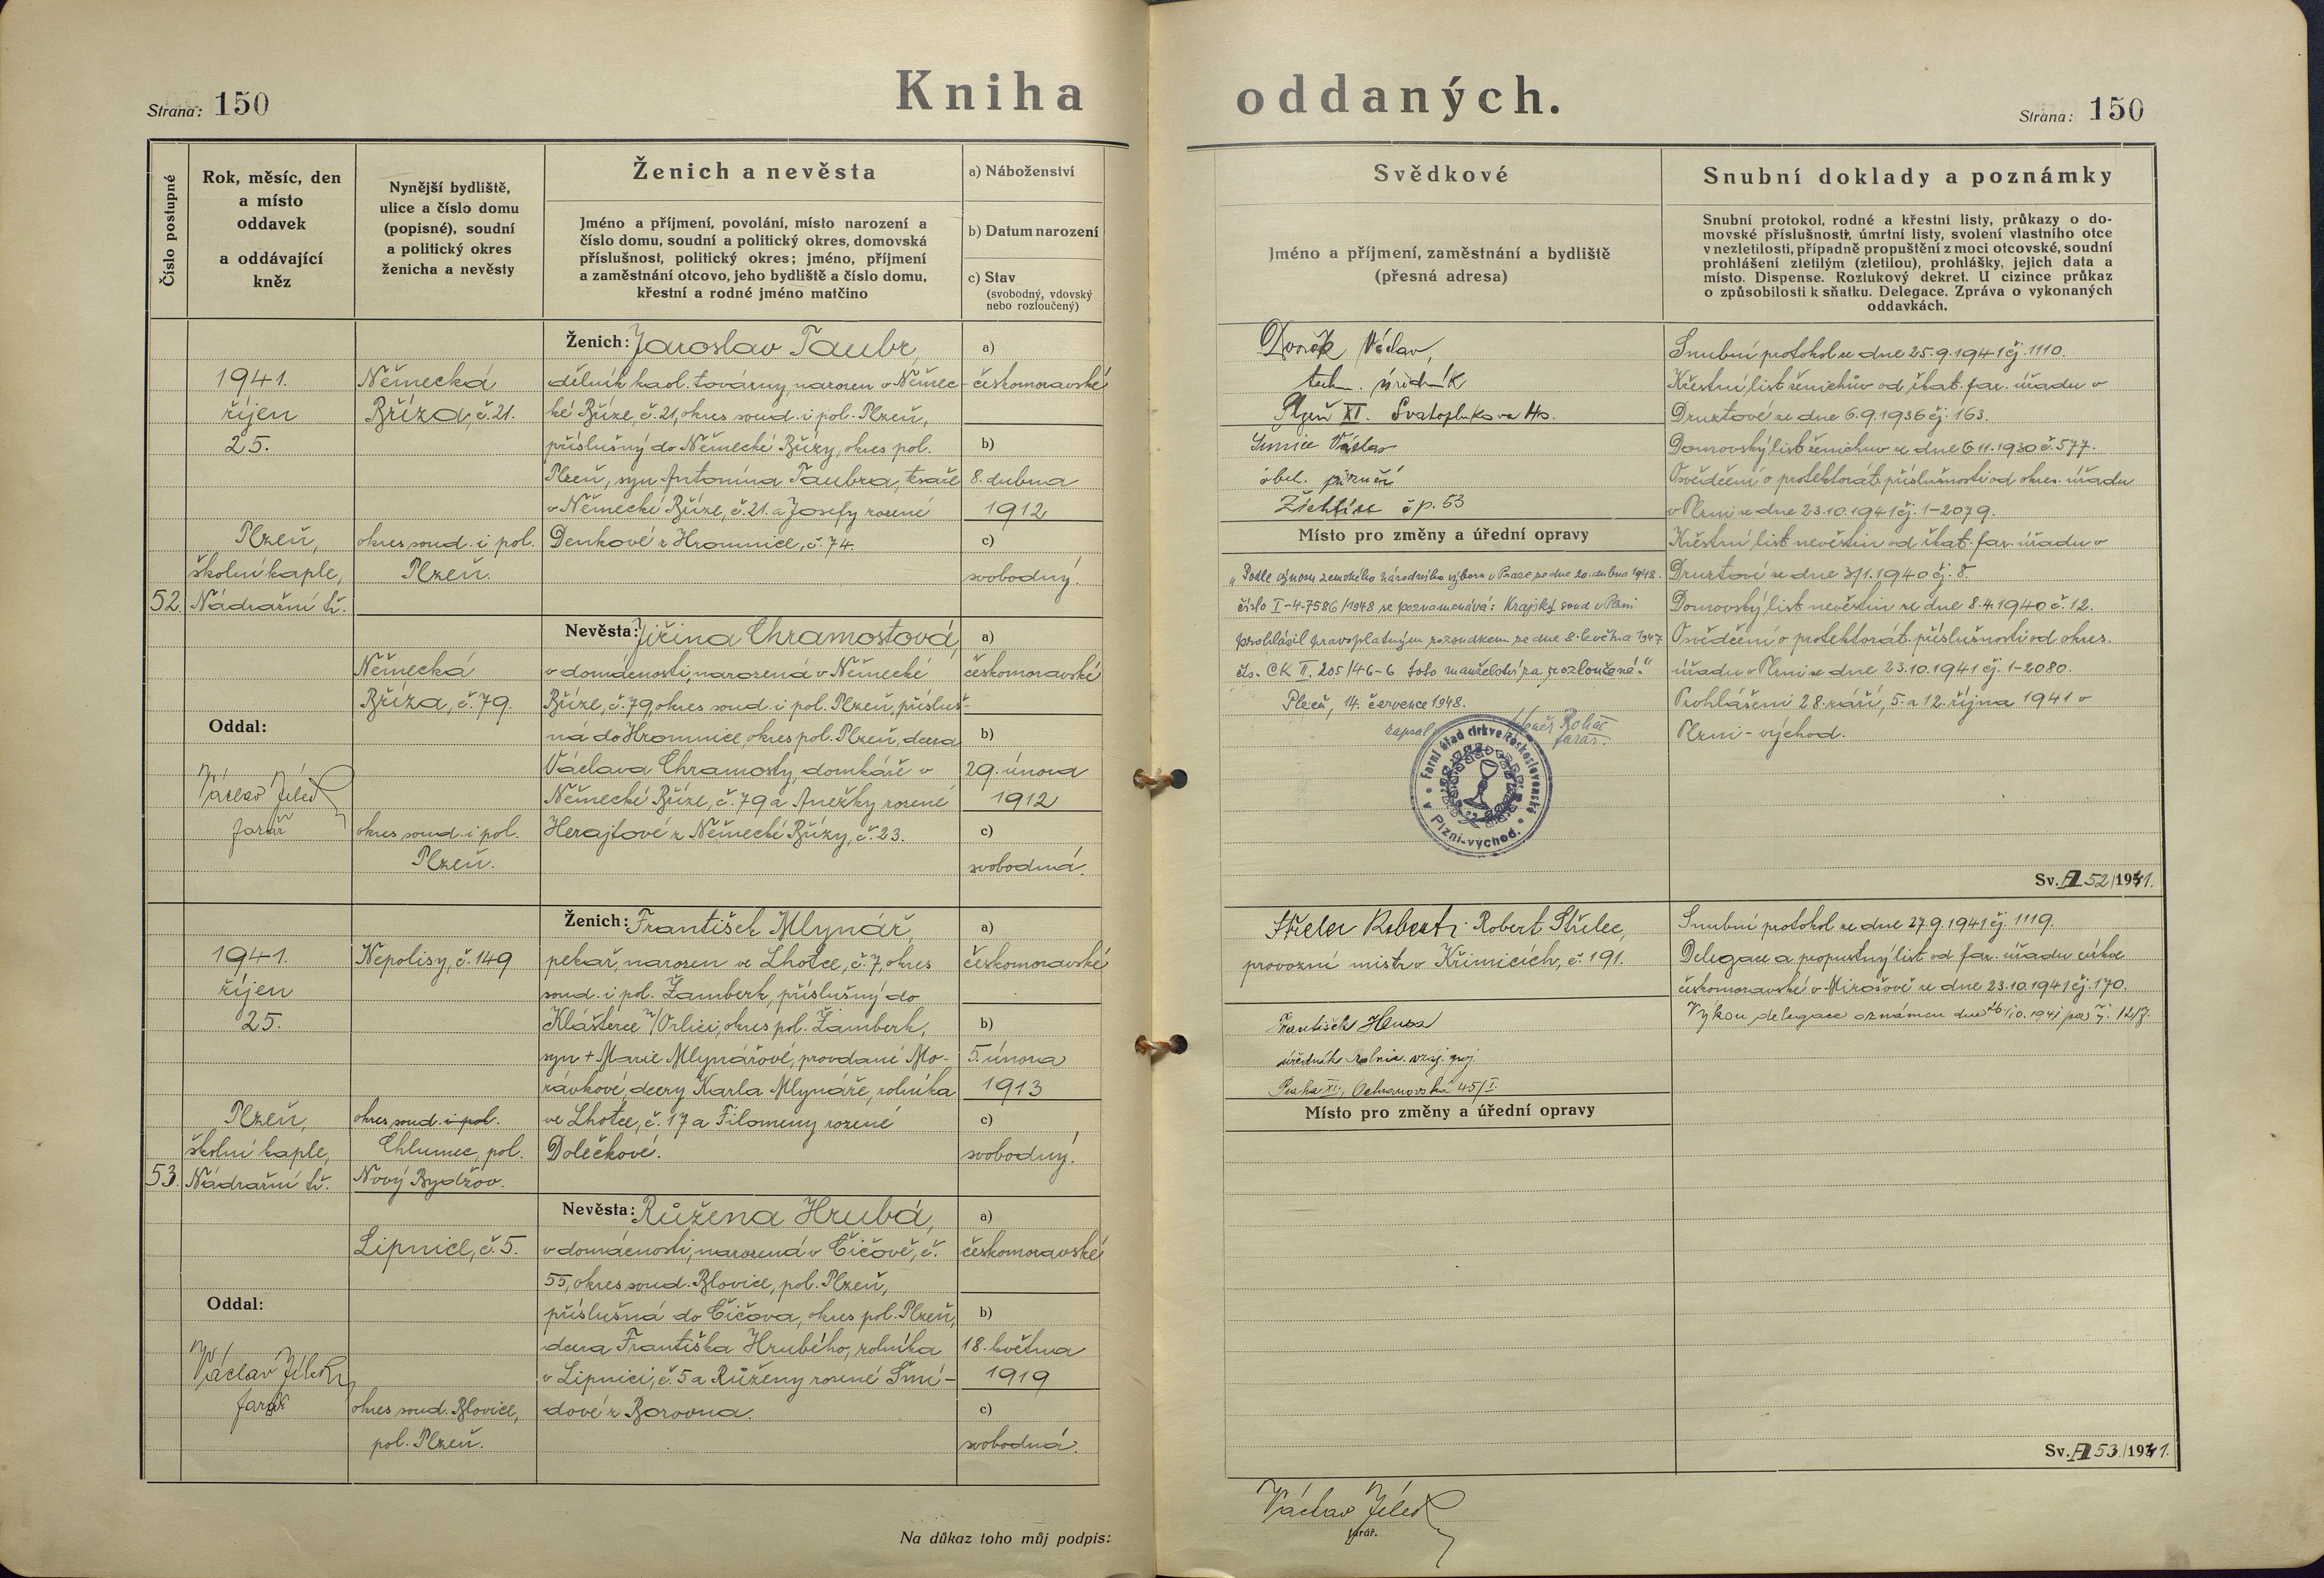 Strana: 150
Kniha oddaných.
Strana: 150
Číslo postupné
Rok, měsíc, den
a místo
oddavek
a oddávající
kněz
Nynější bydliště,
ulice a číslo domu
(popisné), soudní
a politický okres
ženicha a nevěsty
Ženich a nevěsta
Jméno a příjmení, povolání, místo narození a
číslo domu, soudní a politický okres, domovská
příslušnost, politický okres; jméno, příjmení
a zaměstnání otcovo, jeho bydliště a číslo domu,
křestní a rodné jméno matčino
a) Náboženství
b) Datum narození
c) Stav
(svobodný, vdovský
nebo rozloučený)
Svědkové
Jméno a příjmení, zaměstnání a bydliště
(přesná adresa)
Snubní doklady a poznámky
Snubní protokol, rodné a křestní listy, průkazy o do-
movské příslušnosti, úmrtní listy, svolení vlastního otce
v nezletilosti, případně propuštění z moci otcovské, soudní
prohlášení zletilým (zletilou), prohlášky, jejich data a
místo. Dispense. Rozlukový dekret. U cizince průkaz
o způsobilosti k sňatku. Delegace. Zpráva o vykonaných
oddavkách.
52.
1941.
říjen
25.
Plzeň,
školní kaple,
Nádražní tř.
Oddal:
Václav Jílek
farář
Německá
Bříza, č. 21.
okres soud. i pol.
Plzeň.
Německá
Bříza, č. 79.
okres soud. i pol.
Plzeň.
Ženich: Jaroslav Taubr,
dělník kaol. továrny, narozen v Němec-
ké Bříze, č. 21, okres soud. i pol. Plzeň,
příslušný do Německé Břízy, okres pol.
Plzeň, syn Antonína Taubra, tesaře
v Německé Bříze, č. 21. a Josefy rozené
Denkové z Hromnice, č. 74.
Nevěsta: Jiřina Chramostová,
v domácnosti, narozená v Německé
Bříze, č. 79, okres soud. i pol. Plzeň, přísluš-
ná do Hromnice, okres pol. Plzeň, dcera
Václava Chramosty, domkáře v
Německé Bříze, č. 79 a Anežky rozené
Herajtové z Německé Břízy, č. 23.
a)
českomoravské
b)
8. dubna
1912
c)
svobodný.
a)
českomoravské
b)
29. února
1912
c)
svobodná.
Dvořák Václav,
techn. úředník
Plzeň XI. Svatoplukova
Václav
Žichlice čp. 53
Místo pro změny a úřední opravy
"Podle výnosu zemského národního výboru v Praze ze dne 20. dubna 1948.
číslo I-4-7586/1948 se poznamenává: Krajský soud v Plzni
prohlásil pravoplatným rozsudkem ze dne 8. května 1947
čís. CK II. 205/46-6 toto manželství za rozloučené."
Plzeň, 14. července 1948.
zapsal
farář.
Farní úřad církve československé
v Plzni-východ.
Snubní protokol ze dne 25.9.1941 čj. 1110.
Křestní list ženichův od řkat. far. úřadu v
Druztové ze dne 6.9.1936 čj. 163.
Domovský list ženichův ze dne 6.11.1930 č. 577.
Osvědčení o protektorát. příslušnosti od okres. úřadu
v Plzni ze dne 23.10.1941 čj. 1-2079.
Křestní list nevěstin od řkat. far. úřadu v
Druztové ze dne 3/1.1940 čj. 8.
Domovský list nevěstin ze dne 8.4.1940 č. 12.
Osvědčení o protektorát. příslušnosti od okres.
úřadu v Plzni ze dne 23.10.1941 čj. 1-2080.
Prohlášeni 28. září, 5. a 12. října 1941 v
Plzni-východ.
Sv. 52/1941.
53.
1941.
říjen
25.
Plzeň,
školní kaple,
Nádražní tř.
Oddal:
Václav Jílek
farář
Nepolisy, č. 149
okres soud. i pol.
Chlumec, pol.
Nový Bydžov.
Lipnice, č. 5.
okres soud. Blovice,
pol. Plzeň.
Ženich: František Mlynář,
pekař, narozen ve Lhotce, č. 7, okres
soud. i pol. Žamberk, příslušný do
Klášterce n/Orlicí, okres pol. Žamberk,
syn + Marie Mlynářové, provdané Mo-
rávkové, dcery Karla Mlynáře, rolníka
ve Lhotce, č. 17 a Filomeny rozené
Dolečkové.
Nevěsta: Růžena Hrubá,
v domácnosti, narozená v Číčově, č.
55, okres soud. Blovice, pol. Plzeň,
příslušná do Číčova, okres pol. Plzeň,
dcera Františka Hrubého, rolníka
v Lipnici, č. 5 a Růženy rozené Šmí-
dové z Borovna.
a)
českomoravské
b)
5. února
1913
c)
svobodný.
a)
českomoravské
b)
18. května
1919
c)
svobodná.
Střelec Robert; Robert Střelec,
provozní mistr v Křimicích, č. 191.
František Husa
úředník Rolnic. vzaj. poj.
Praha XI., Ochranovská 45/I.
Místo pro změny a úřední opravy
Snubní protokol ze dne 27.9.1941 čj. 1119.
Delegace a propustný list od far. úřadu církve
českomoravské v Mirošově ze dne 23.10.1941 čj. 170.
Výkon delegace oznámen dne 26/10. 1941 pod čj.
Sv. 53/1941.
Na důkaz toho můj podpis:
Václav Jílek
farář.